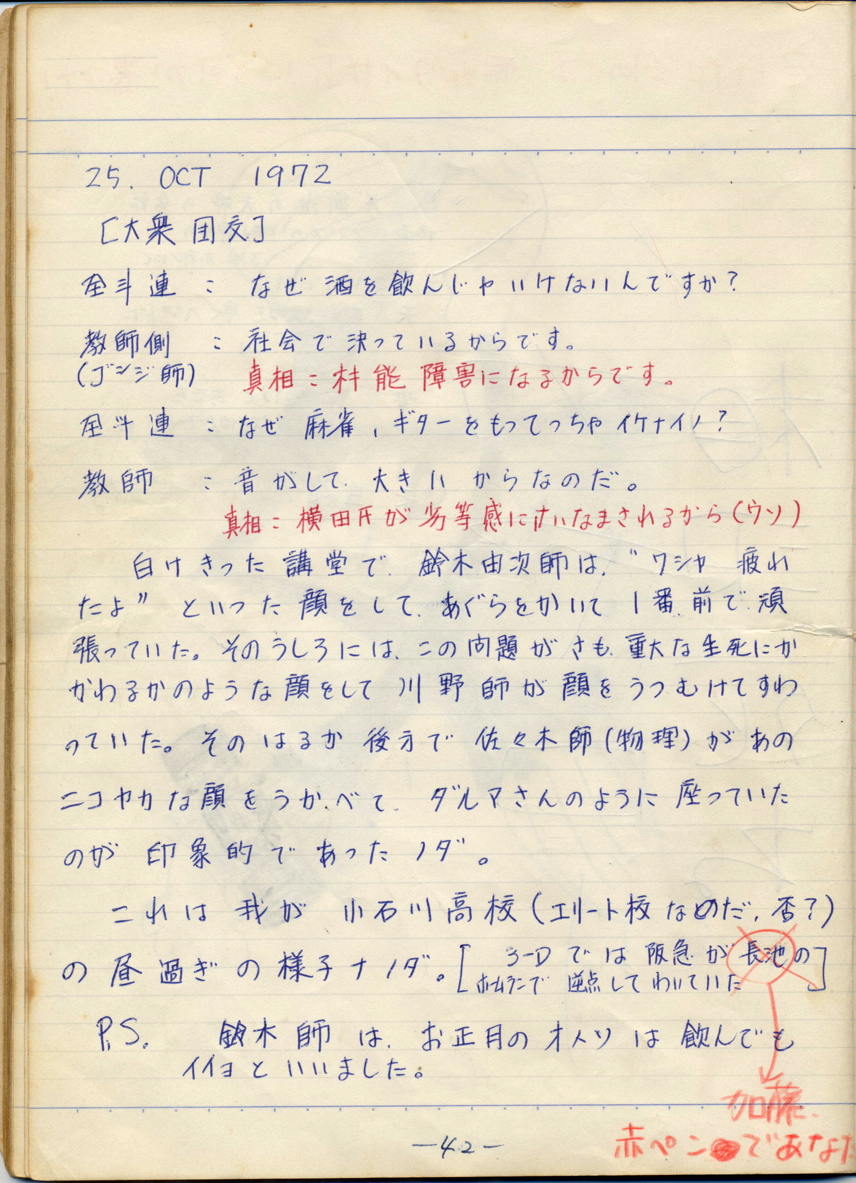 25. OCT 1972
[大衆団交]
全斗連 : なぜ 酒を飲んじゃいけないんですか?
教師側 : 社会で決っているからです。
(ゴンジ師) 真相:材能障害になるからです。
全斗連 : なぜ 麻雀、ギターをもってっちゃイケナイノ?
教師 : 音がして、大きいからなのだ。
真相:横田氏が劣等感にさいなまされるから(ウソ)
白けきった講堂で、鈴木由次師は、"ワシャ疲れ
たよ"といった顔をして、あぐらをかいて1番前で頑
張っていた。そのうしろには、この問題がさも重大な生死にか
かわるかのような顔をして川野師が顔をうつむけてすわ
っていた。そのはるか後方で佐々木師(物理)があの
ニコヤカな顔をうかべて、ダルマさんのように座っていた
のが印象的であったノダ。
これは我が小石川高校(エリート校なのだ,否?)
の昼過ぎの様子ナノダ。[3-Dでは阪急が長池の
ホームランで逆点してわいていた]
P.S. 鈴木師は、お正月のオトソは飲んでも
イイヨといいました。
加藤、
赤ペンであな
-42-